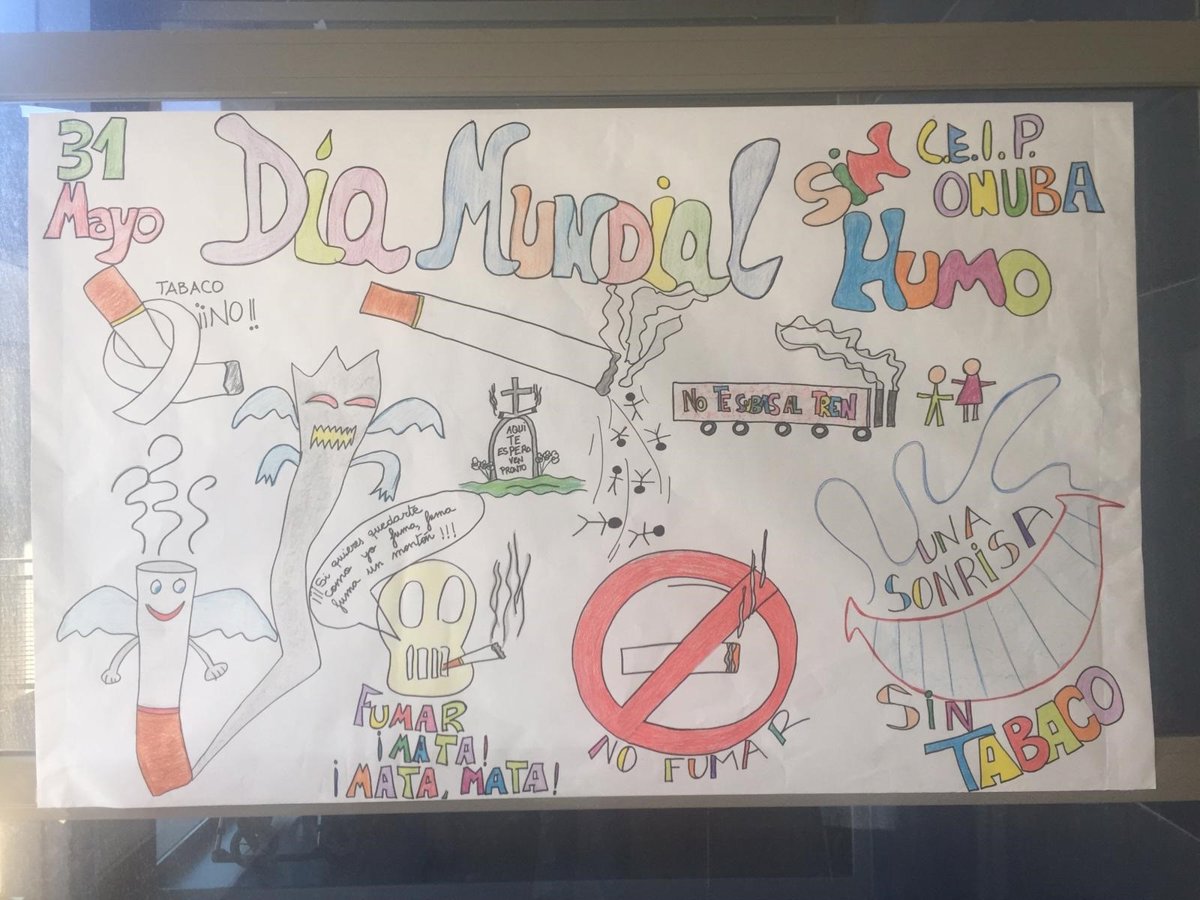 31
Mayo
Día Mundial
Sin
Humo
C.E.I.P.
ONUBA
TABACO
¡¡NO!!
AQUÍ
TE
ESPERO
VEN
PRONTO
NO TE SUBAS AL TREN
¡¡¡Si quieres quedarte
como yo fuma, fuma
fuma un montón!!!
FUMAR
¡MATA!
¡MATA, MATA!
NO FUMAR
UNA
SONRISA
SIN
TABACO